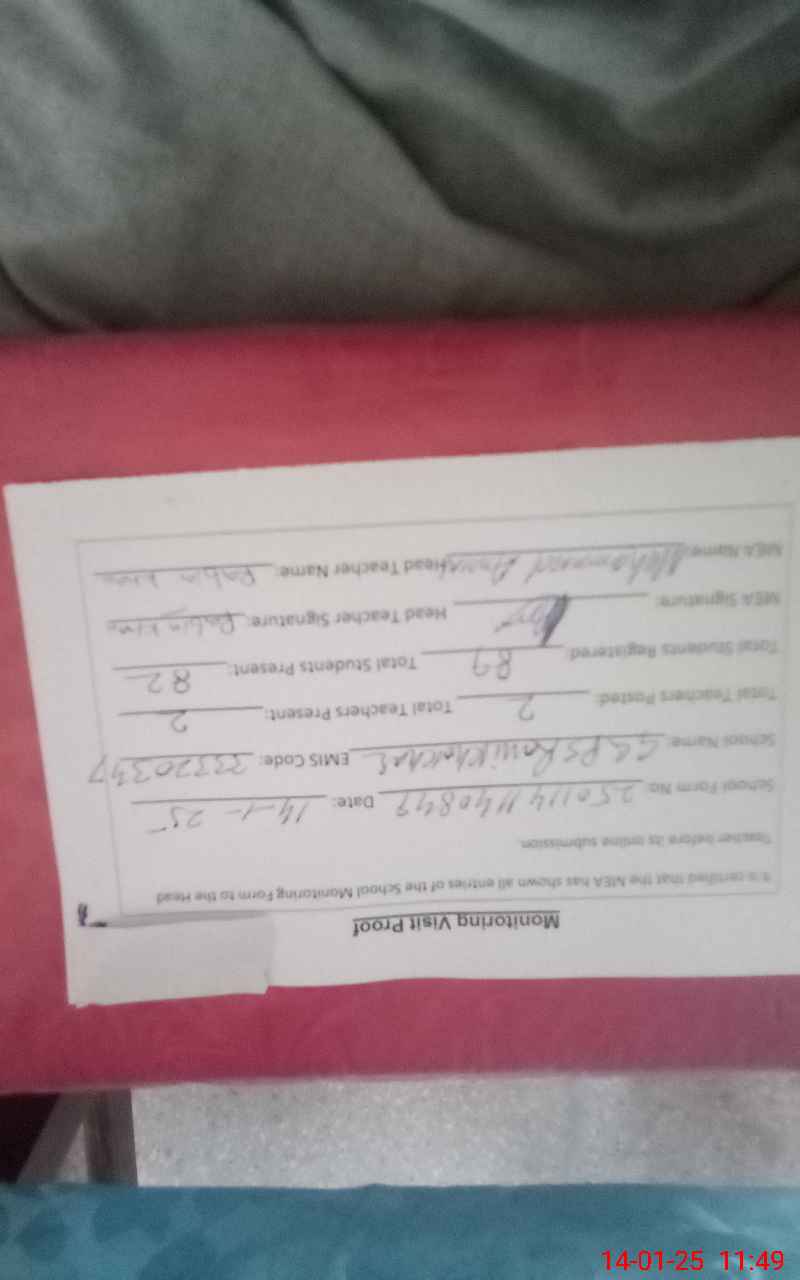 Monitoring Visit Proof
It is certified that the MEA has shown all entries of the School Monitoring Form to the Head
Teacher before its online submission.
School Form No: 250114114084 Date: 14-1-25
School Name: GGPS EMIS Code: 33320347
Total Teachers Posted: 2 Total Teachers Present: 2
Total Students Registered: 89 Total Students Present: 82
MEA Signature: Head Teacher Signature: Rabia
MEA Name: Muhammad Head Teacher Name: Rabia
14-01-25 11:49